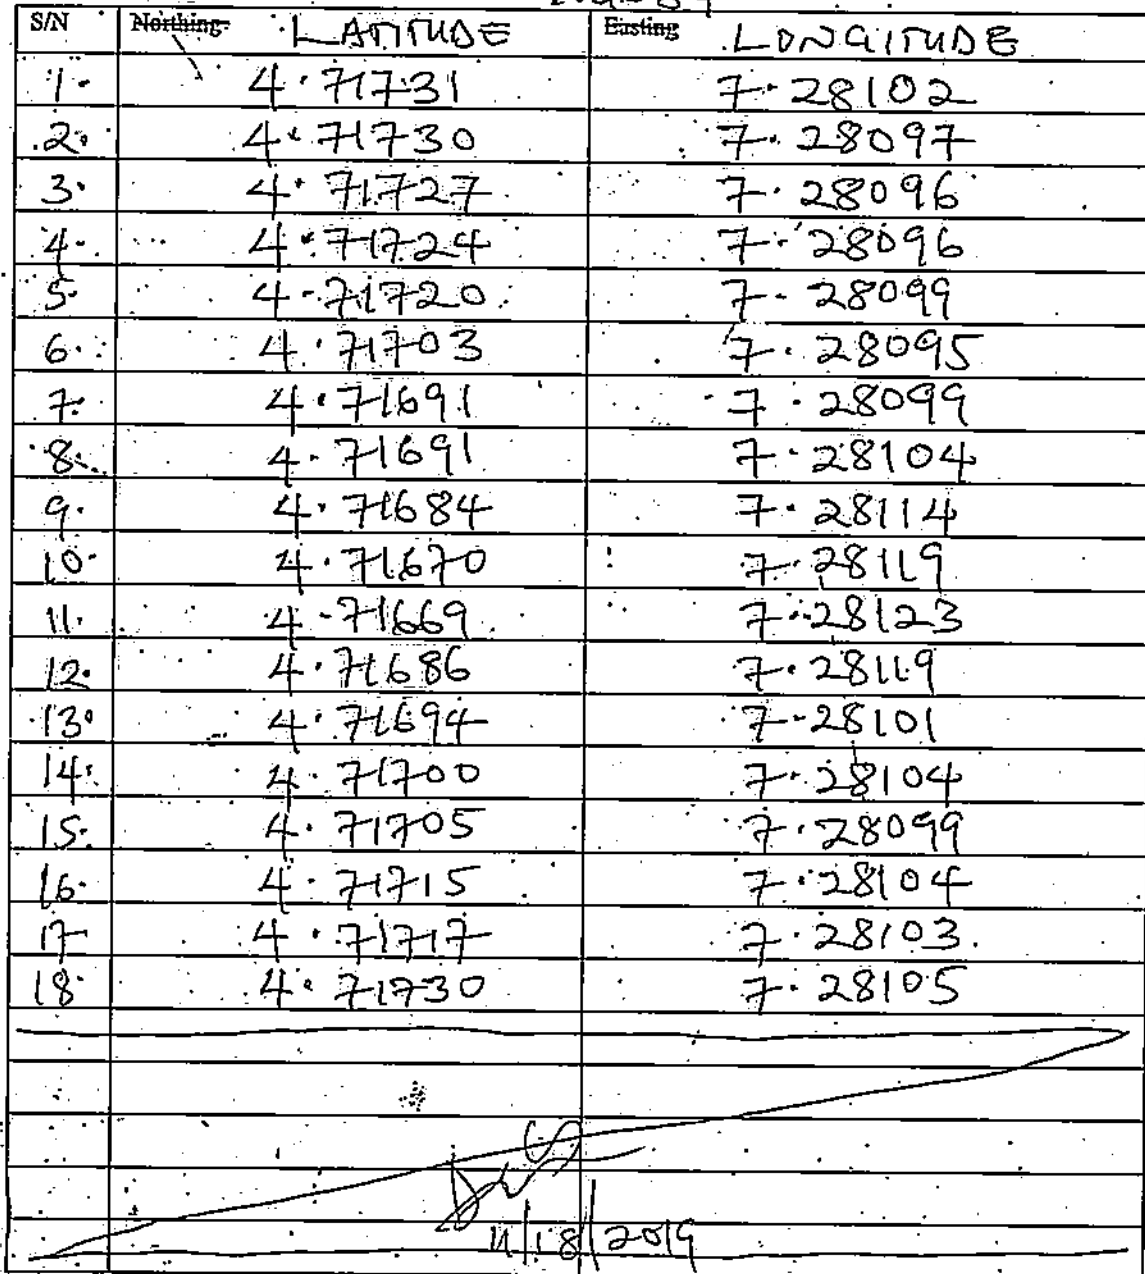 S/N Northing LATITUDE Easting LONGITUDE
1. 4.71731 7.28102
2. 4.71730 7.28097
3. 4.71727 7.28096
4. 4.71724 7.28096
5. 4.71720 7.28099
6. 4.71703 7.28095
7. 4.71691 7.28099
8. 4.71691 7.28104
9. 4.71684 7.28114
10. 4.71670 7.28119
11. 4.71669 7.28123
12. 4.71686 7.28119
13. 4.71694 7.28101
14. 4.71700 7.28104
15. 4.71705 7.28099
16. 4.71715 7.28104
17 4.71717 7.28103
18. 4.71730 7.28105
11/18/2019